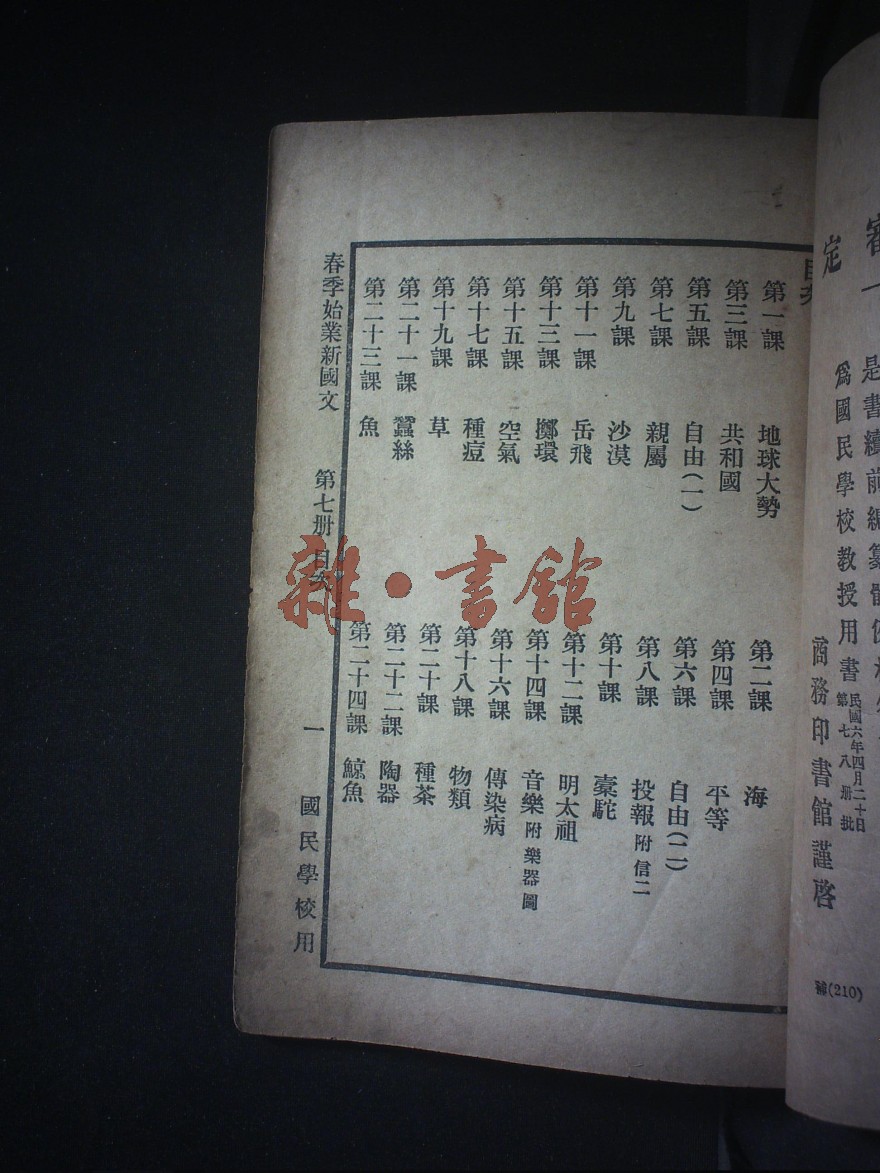 審
定
是書續前編纂體例
為國民學校教授用書 民國六年四月二十日第七八册批
商務印書館謹啓
(210)
目次
第一課 地球大勢
第二課 海
第三課 共和國
第四課 平等
第五課 自由(一)
第六課 自由(二)
第七課 親屬
第八課 投報 附信二
第九課 沙漠
第十課 橐駝
第十一課 岳飛
第十二課 明太祖
第十三課 擲環
第十四課 音樂 附樂器圖
第十五課 空氣
第十六課 傳染病
第十七課 種痘
第十八課 物類
第十九課 草
第二十課 種茶
第二十一課 蠶絲
第二十二課 陶器
第二十三課 魚
第二十四課 鯨魚
春季始業新國文 第七册 目次 一 國民學校用
雜·書館